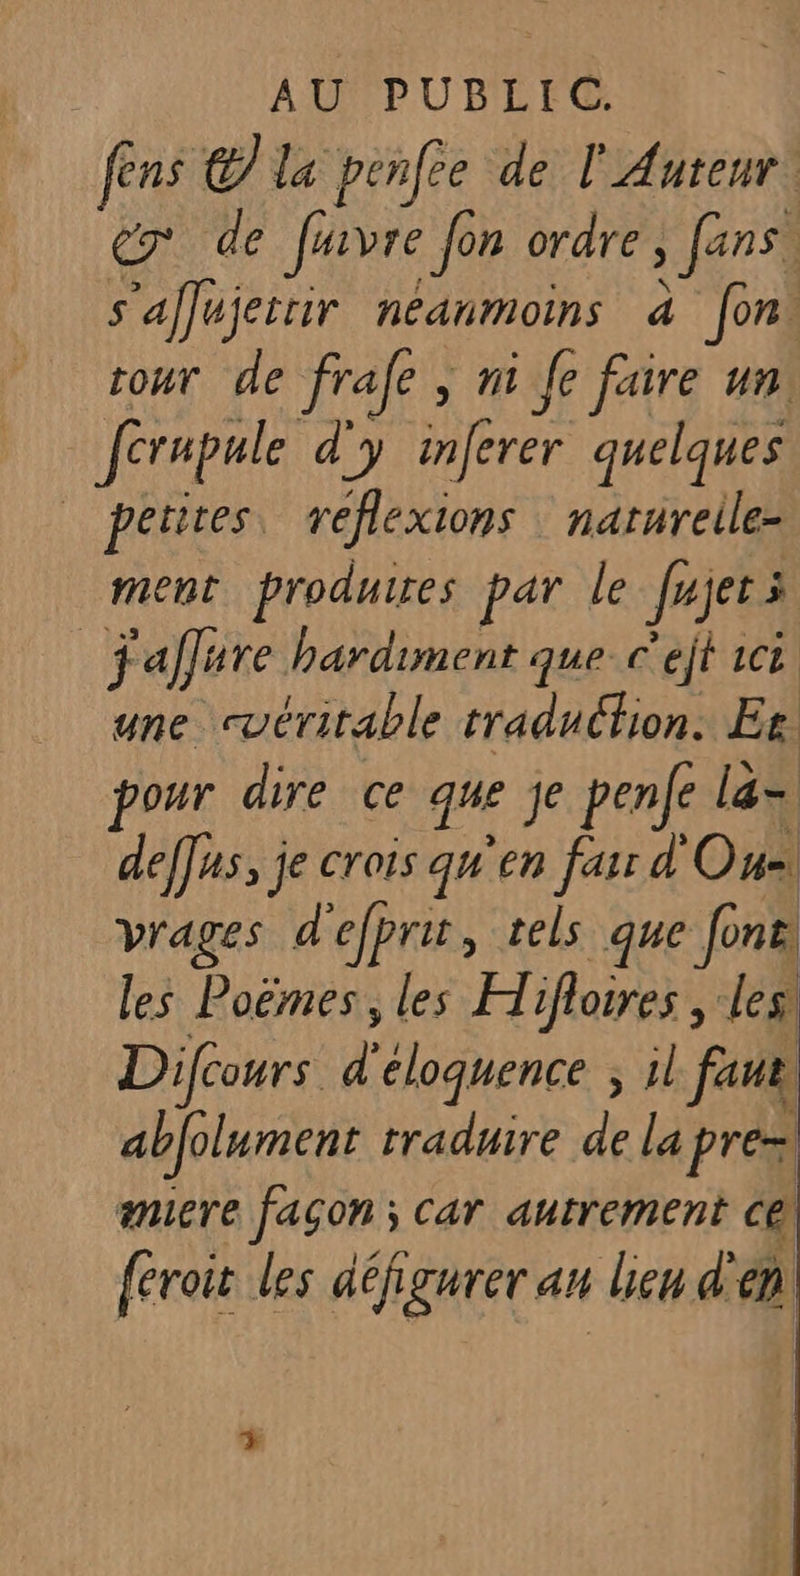 AU PUBLIC.
ſens & la penſée de l'Auteur
& de ſuivre ſon ordre, ſans
s'aſſujettir néanmoins à ſon
tour de fraſe, ni ſe faire un
ſcrupule d'y inſerer quelques
petites réflexions naturelle-
ment produites par le ſujet;
j'aſſure hardiment que c'eſt ici
une véritable traduction. Et
pour dire ce que je penſe là-
deſſus, je crois qu'en fait d'Ou-
vrages d'eſprit, tels que ſont
les Poëmes, les Hiſtoires, les
Diſcours d'éloquence, il faut
abſolument traduire de la pre-
miere façon; car autrement ce
ſeroit les défigurer au lieu d'en